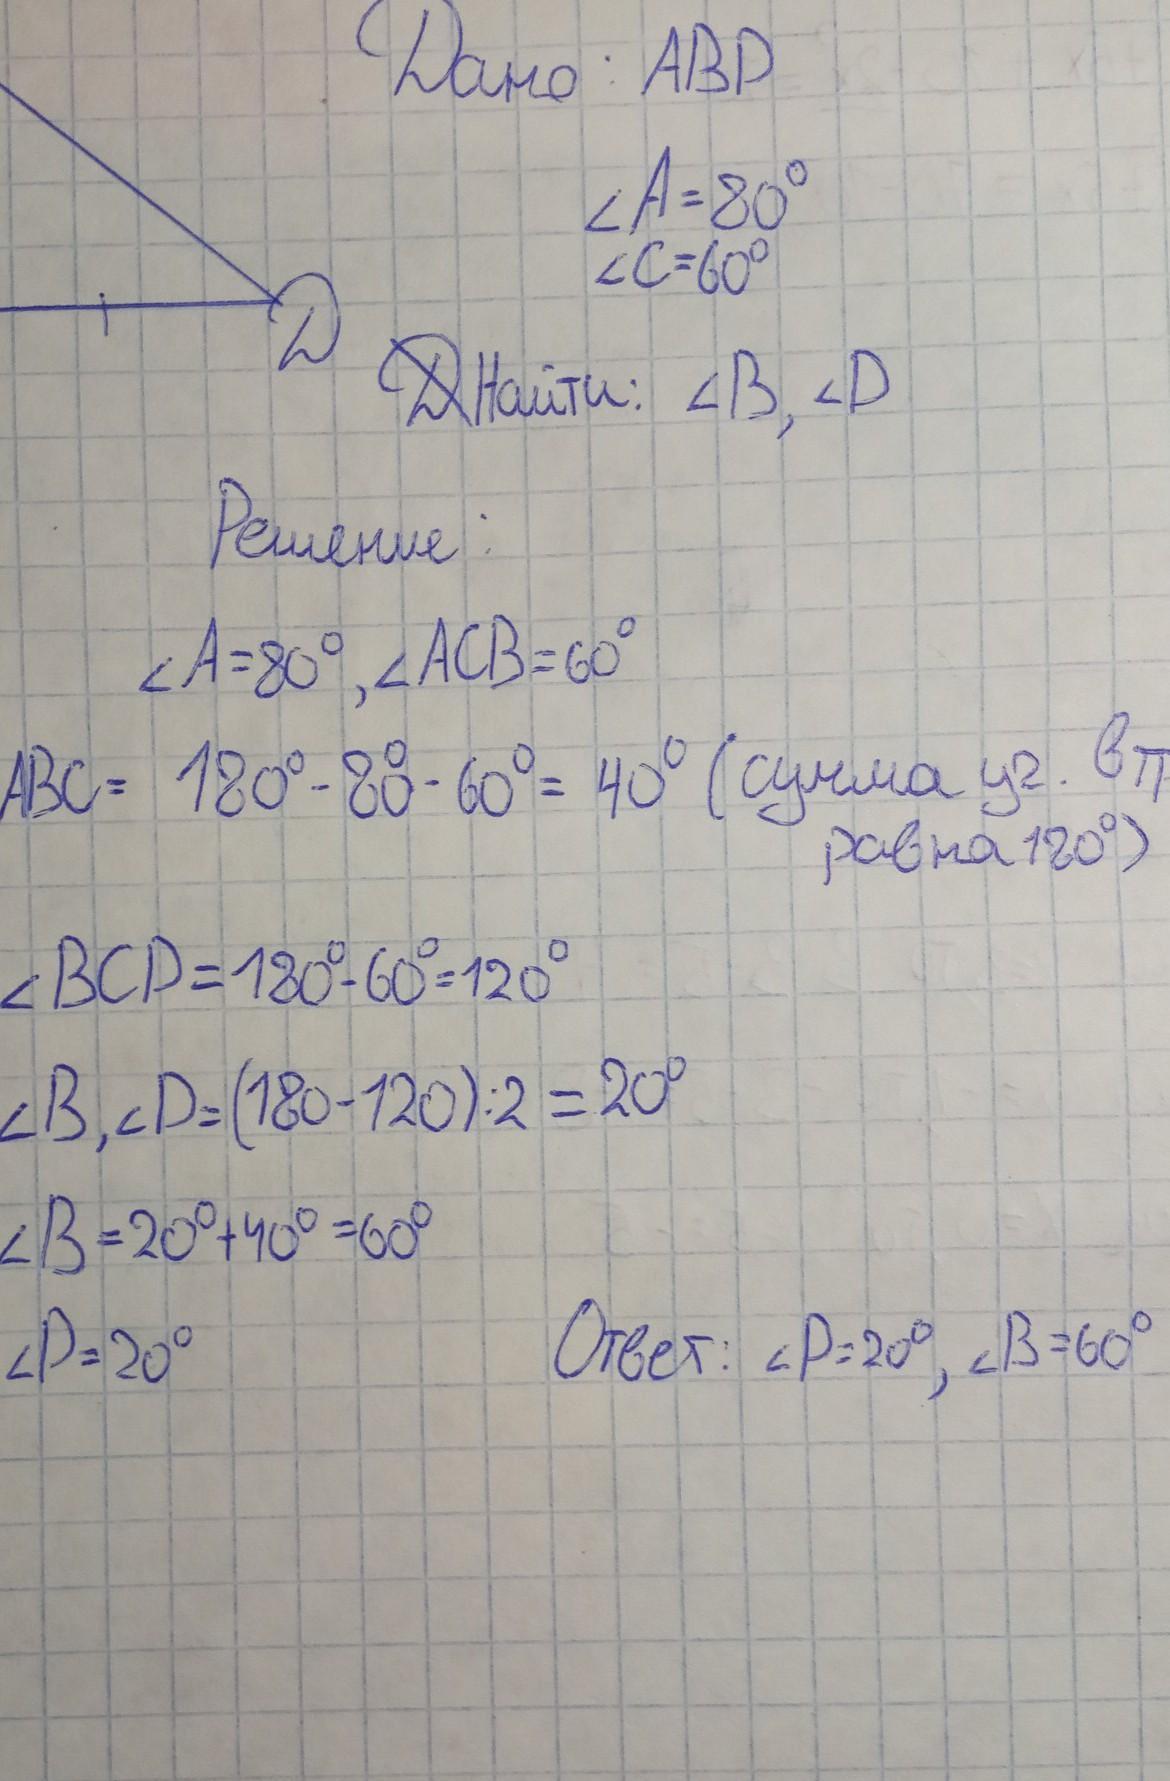 Дано: ABD
∠A=80°
∠C=60°
D
Найти: ∠B, ∠D
Решение:
∠A=80°, ∠ACB=60°
ABC= 180°-80°-60°= 40° (сумма уг. в
равна 180°)
∠BCD=180°-60°=120°
∠B,∠D=(180-120):2=20°
∠B=20°+40°=60°
∠D=20°
Ответ: ∠D=20°, ∠B=60°